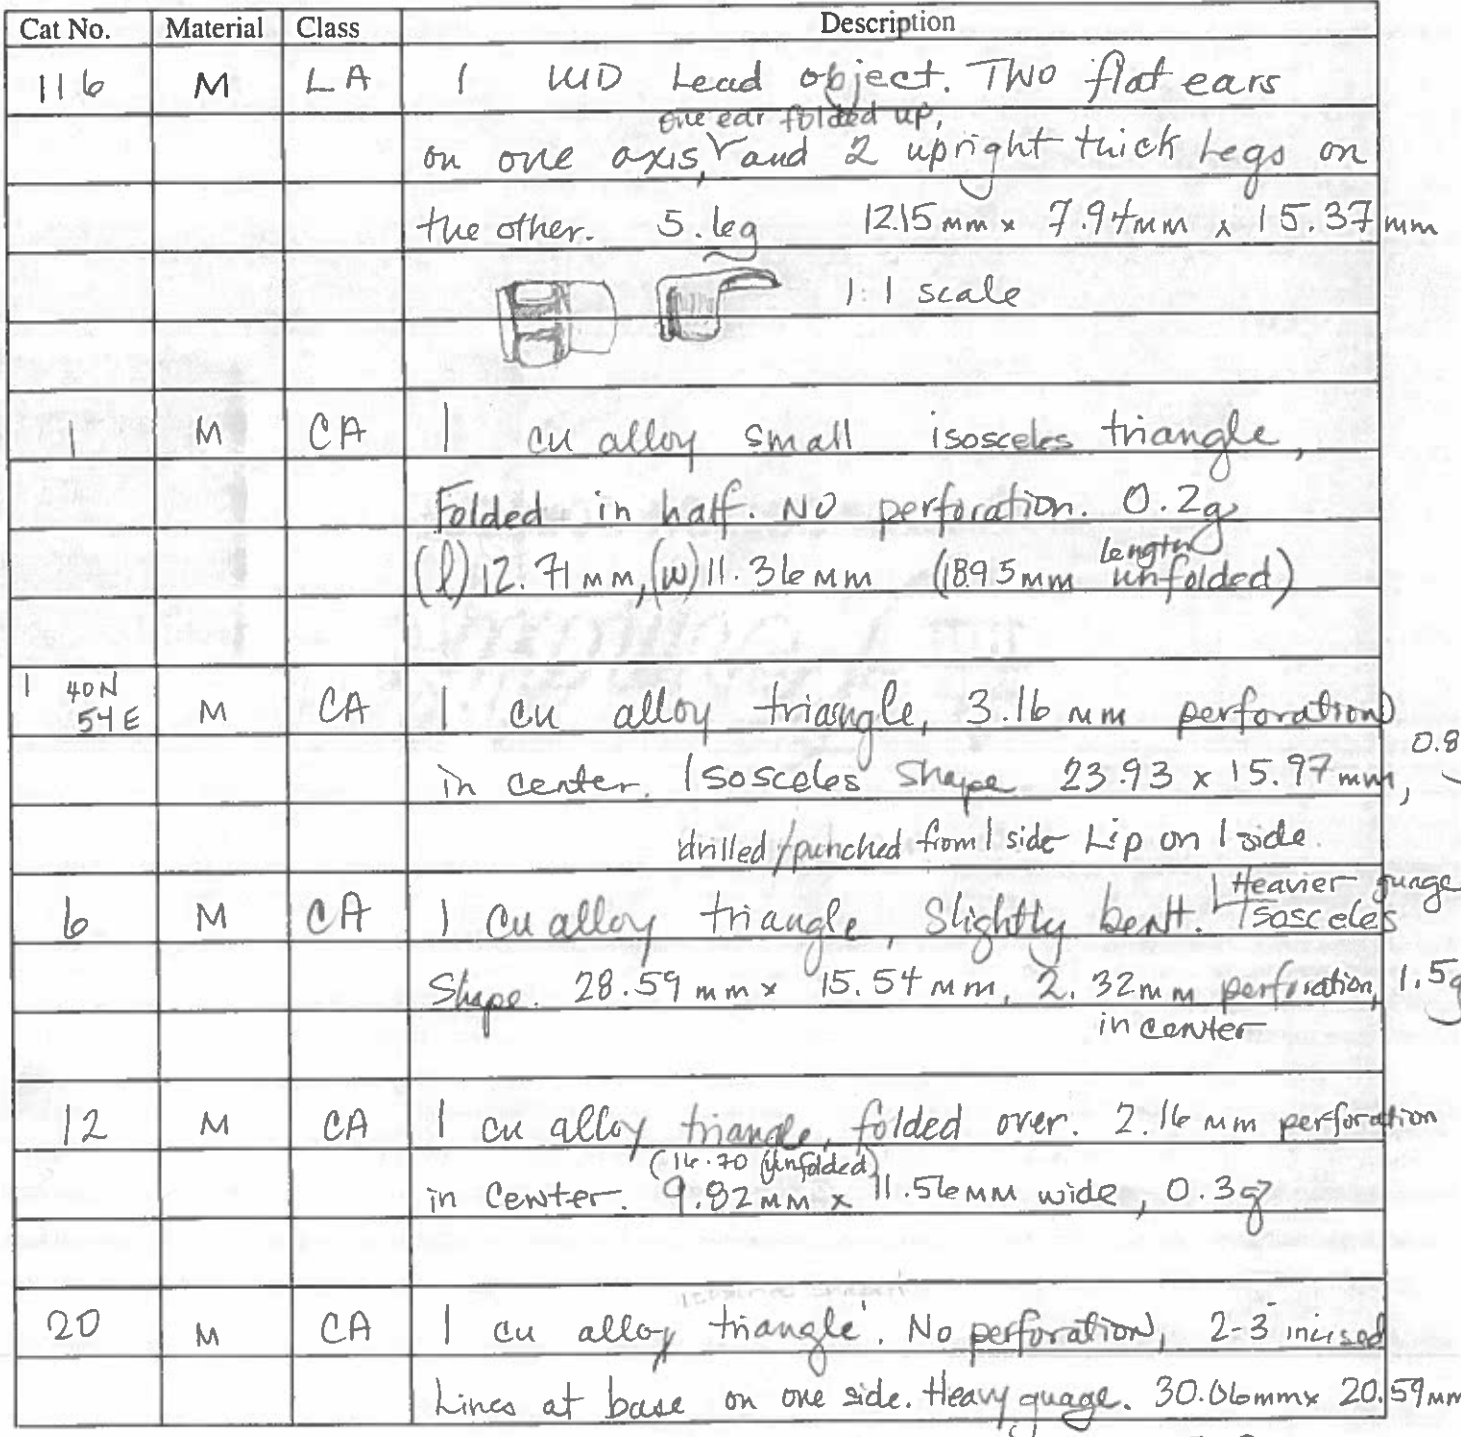 Cat No. Material Class Description
116 M LA 1 UID Lead object. Two flat ears
one ear folded up,
on one axis, and 2 upright thick Legs on
the other. 5.6g 12.15mm x 7.94mm x 15.37mm
1:1 scale
1 M CA 1 cu alloy small isosceles triangle,
Folded in half. NO perforation. 0.2g
length
(l) 12.71mm, (w) 11.36mm (18.95mm unfolded)
1 40N
54E M CA 1 cu alloy triangle, 3.16 mm perforation
0.8
in center. Isosceles Shape 23.93 x 15.97mm,
drilled/punched from 1 side Lip on 1 side.
Heavier guage
6 M CA 1 Cu alloy triangle, Slightly bent. Isosceles
Shape. 28.59mm x 15.54mm, 2.32mm perforation, 1.5g
in center
12 M CA 1 cu alloy triangle, folded over. 2.16mm perforation
(16.70 unfolded)
in Center. 9.82mm x 11.56mm wide, 0.3g
20 M CA 1 cu alloy triangle. No perforation, 2-3 incised
Lines at base on one side. Heavy guage. 30.06mm x 20.59mm